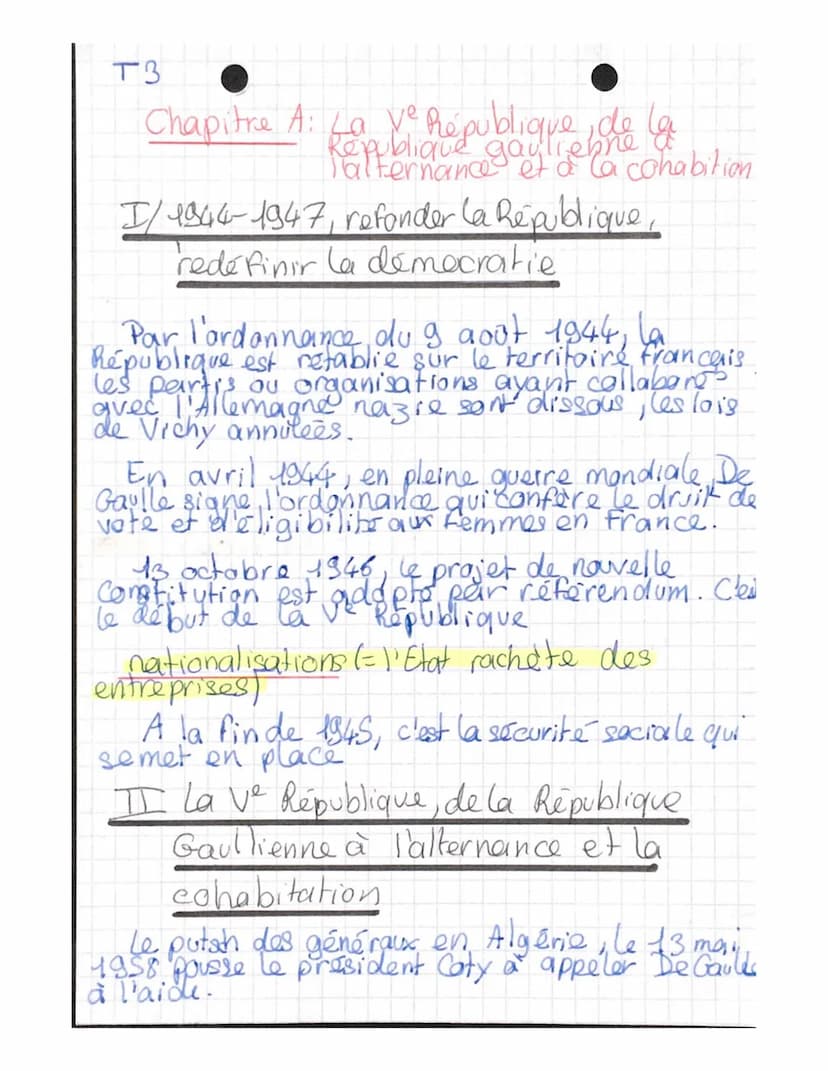 T3
Chapitre A: La Ve République, de la
République gaullienne à
l'alternance et à la cohabition
I/ 1944-1947, refonder la République,
redéfinir la démocratie
Par l'ordonnance du 9 août 1944, la
République est rétablie sur le territoire français
les partis ou organisations ayant collaboré
avec l'Allemagne nazie sont dissous, les lois
de Vichy annulées.
En avril 1944, en pleine guerre mondiale, De
Gaulle signe l'ordonnance qui confère le droit de
vote et d'éligibilité aux femmes en France.
13 octobre 1946, le projet de nouvelle
Constitution est addopté par référendum. C'est
le début de la Ve République
nationalisations (= l'Etat rachète des
entreprises)
A la fin de 1945, c'est la sécurité sociale qui
se met en place
II La Ve République, de la République
Gaullienne à l'alternance et la
cohabitation
Le putsh des généraux en Algérie, le 13 mai
1958 pousse le président Coty à appeler De Gaulle
à l'aide.